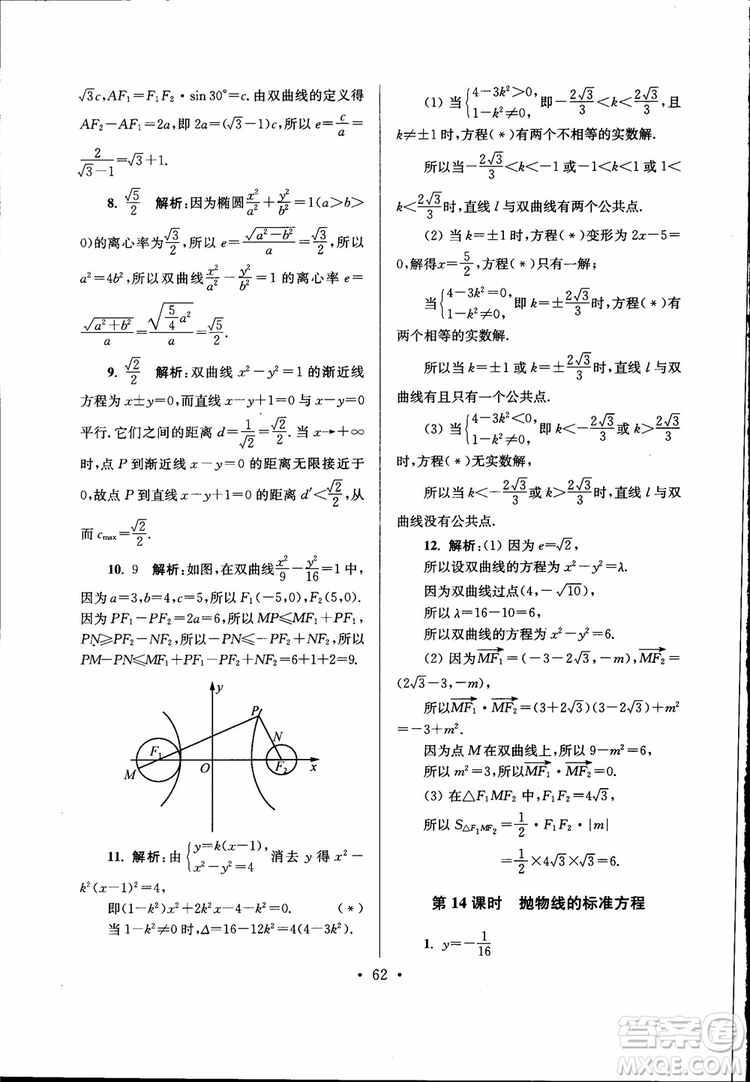 √3c,AF₁=F₁F₂·sin30°=c.由双曲线的定义得
AF₂-AF₁=2a,即2a=(√3-1)c,所以e=c/a=
2/(√3-1)=√3+1.
8. √5/2 解析:因为椭圆x²/a²+y²/b²=1(a>b>
0)的离心率为√3/2,所以e=√(a²-b²)/a=√3/2,所以
a²=4b²,所以双曲线x²/a²-y²/b²=1的离心率e=
√(a²+b²)/a=√(5/4 a²)/a=√5/2.
9. √2/2 解析:双曲线x²-y²=1的渐近线
方程为x±y=0,而直线x-y+1=0与x-y=0
平行.它们之间的距离d=1/√2=√2/2.当x→+∞
时,点P到渐近线x-y=0的距离无限接近于
0,故点P到直线x-y+1=0的距离d′<√2/2,从
而c_max=√2/2.
10. 9 解析:如图,在双曲线x²/9-y²/16=1中,
因为a=3,b=4,c=5,所以F₁(-5,0),F₂(5,0).
因为PF₁-PF₂=2a=6,所以MP≤MF₁+PF₁,
PN≥PF₂-NF₂,所以-PN≤-PF₂+NF₂,所以
PM-PN≤MF₁+PF₁-PF₂+NF₂=6+1+2=9.
y
P
N
F₁
F₂
M
O
x
11. 解析:由{y=k(x-1), x²-y²=4 消去y得x²-
k²(x-1)²=4,
即(1-k²)x²+2k²x-4-k²=0. (*)
当1-k²≠0时,Δ=16-12k²=4(4-3k²).
(1) 当{4-3k²>0, 1-k²≠0, 即-2√3/3<k<2√3/3,且
k≠±1时,方程(*)有两个不相等的实数解.
所以当-2√3/3<k<-1或-1<k<1或1<
k<2√3/3时,直线l与双曲线有两个公共点.
(2) 当k=±1时,方程(*)变形为2x-5=
0,解得x=5/2,方程(*)有一个实数解;
当{4-3k²=0, 1-k²≠0, 即k=±2√3/3时,方程(*)有
两个相等的实数解.
所以当k=±1或k=±2√3/3时,直线l与双
曲线有且只有一个公共点.
(3) 当{4-3k²<0, 1-k²≠0, 即k<-2√3/3或k>2√3/3
时,方程(*)无实数解.
所以当k<-2√3/3或k>2√3/3时,直线l与双
曲线没有公共点.
12. 解析:(1) 因为e=√2,
所以设双曲线的方程为x²-y²=λ.
因为双曲线过点(4,-√10),
所以λ=16-10=6.
所以双曲线的方程为x²-y²=6.
(2) 因为MF₁→=(-3-2√3,-m),MF₂→=
(2√3-3,-m),
所以MF₁→·MF₂→=(3+2√3)(3-2√3)+m²
=-3+m².
因为点M在双曲线上,所以9-m²=6,
所以m²=3,所以MF₁→·MF₂→=0.
(3) 在△F₁MF₂中,F₁F₂=4√3,|m|=√3.
所以S△F₁MF₂=1/2·F₁F₂·|m|
=1/2×4√3×√3=6.
第14课时 抛物线的标准方程
1. y=-1/16
· 62 ·
答案圈
MXQE.COM